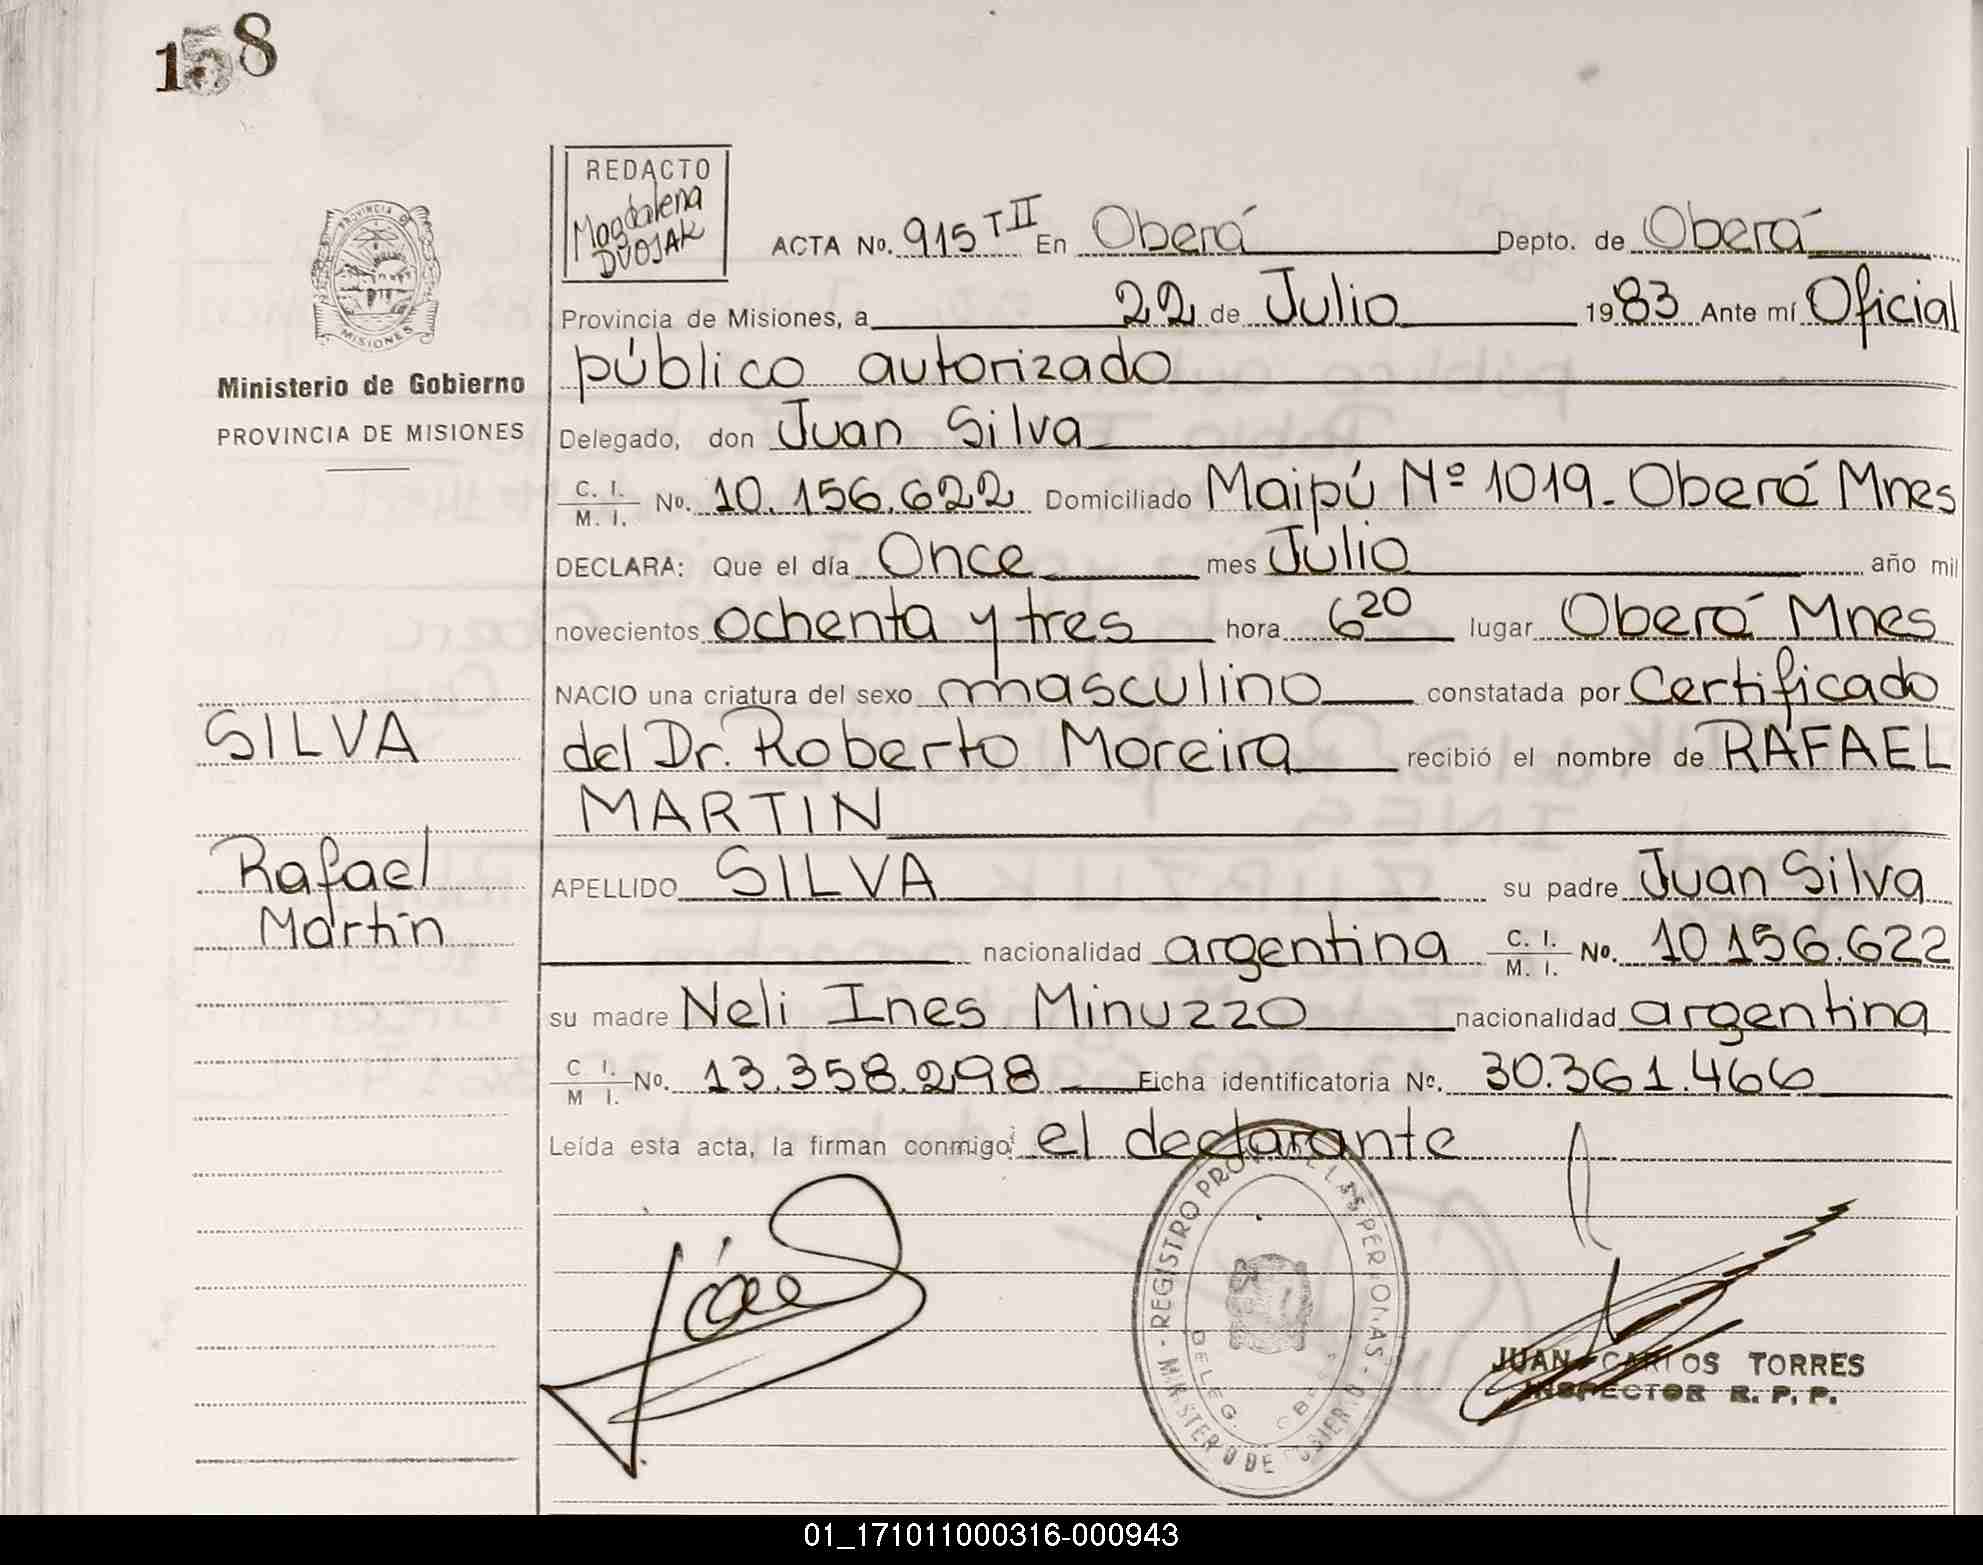 158
REDACTO
Magdalena
DVOJAK
ACTA No. 915 T II En Oberá Depto. de Oberá
Provincia de Misiones, a 22 de Julio 1983 Ante mí Oficial
público autorizado
PROVINCIA DE
MISIONES
Ministerio de Gobierno
PROVINCIA DE MISIONES
Delegado, don Juan Silva
C. I.
M. I. No. 10.156.622 Domiciliado Maipú Nº 1019. Oberá Mnes
DECLARA: Que el día Once mes Julio año mil
novecientos ochenta y tres hora 6 20 lugar Oberá Mnes
NACIO una criatura del sexo masculino constatada por Certificado
del Dr. Roberto Moreira recibió el nombre de RAFAEL
MARTIN
SILVA
Rafael
Martín
APELLIDO SILVA su padre Juan Silva
nacionalidad argentina C. I.
M. I. No. 10 156.622
su madre Neli Ines Minuzzo nacionalidad argentina
C I.
M I. No. 13.358.298 Ficha identificatoria No. 30.361.466
Leída esta acta, la firman conmigo: el declarante
REGISTRO PROV. DE LAS PERSONAS
DELEG.
MINISTERIO DE GOBIERNO
JUAN CARLOS TORRES
INSPECTOR R. P. P.
01_171011000316-000943